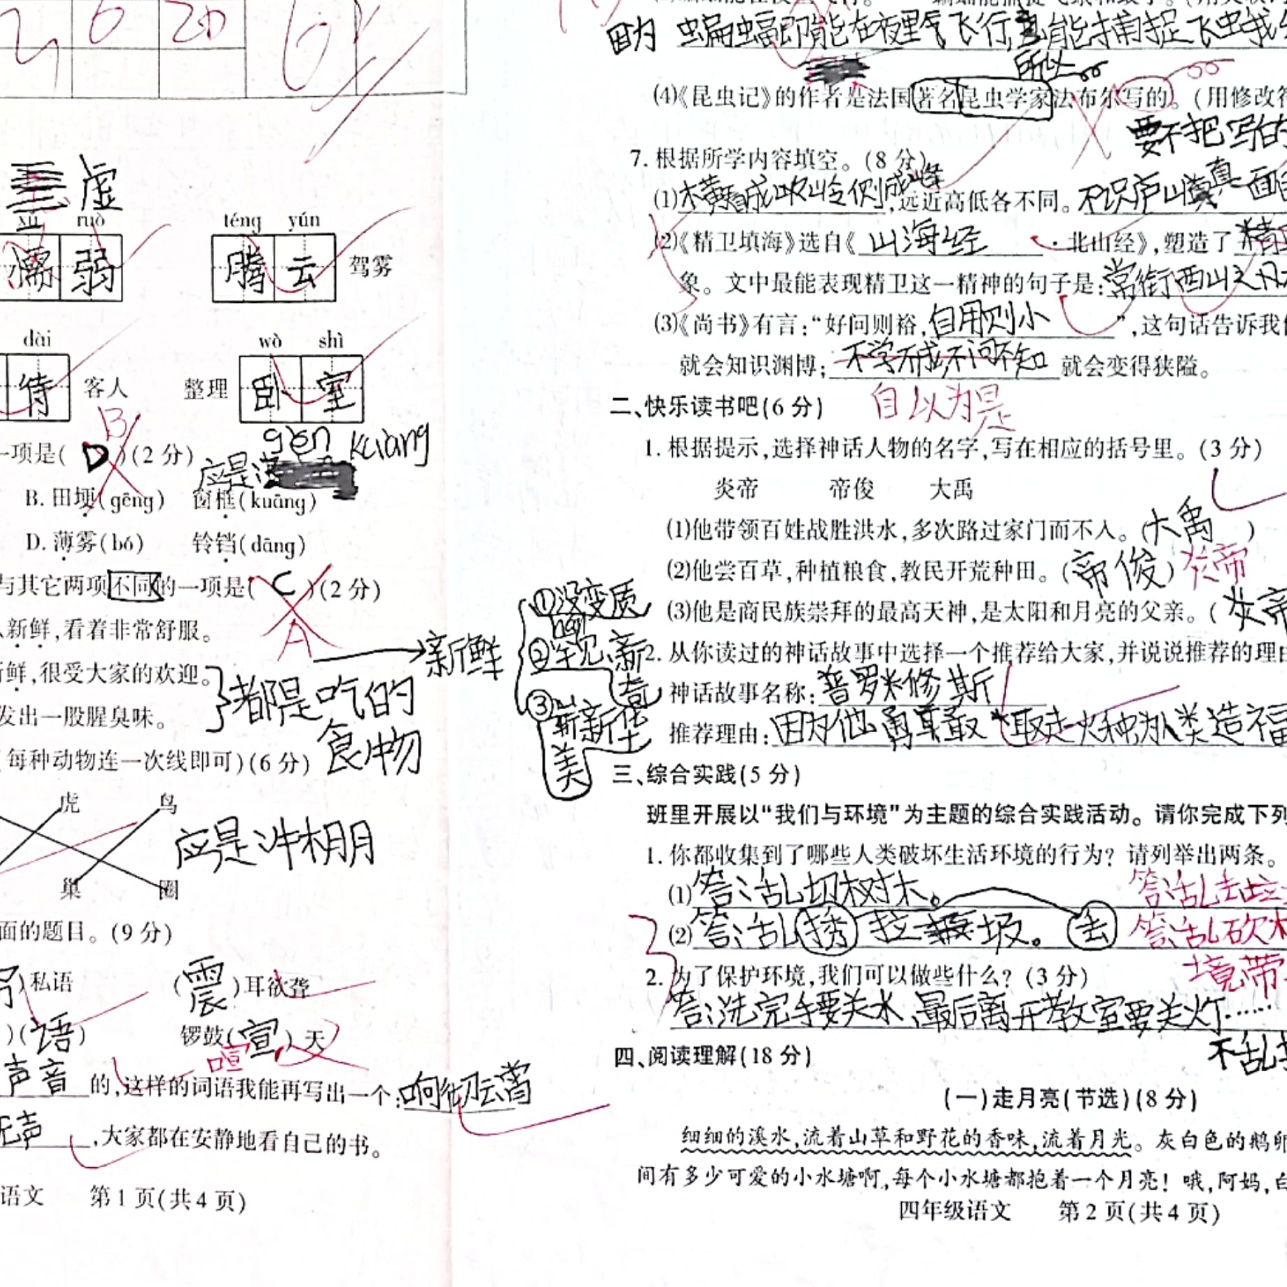 虚
xū ruò
弱
téng yún
腾云 驾雾
dài
待 客人
wò shì
整理 卧室
一项是( D )(2 分)
B
kuāng
应是
B. 田埂(gěng) 窗框(kuāng)
D. 薄雾(bó) 铃铛(dāng)
与其它两项不同的一项是( C )(2 分)
A
新鲜,看着非常舒服。
鲜,很受大家的欢迎。
发出一股腥臭味。
都是吃的
食物
新鲜
①没变质
②罕见,新
③新
美
每种动物连一次线即可)(6 分)
虎 鸟
巢 圈
应是
面的题目。(9 分)
私语 (震)耳欲聋
)(语) 锣鼓(宣)天
喧
声音 的,这样的词语我能再写出一个:响彻云霄
无声 ,大家都在安静地看自己的书。
语文 第 1 页(共 4 页)
因为 蝙蝠即能在夜里飞行,能捕捉飞虫
所以
(4)《昆虫记》的作者是法国著名昆虫学家法布尔写的。(用修改符
要不把写的
7. 根据所学内容填空。(8 分)
(1)横看成岭侧成峰,远近高低各不同。不识庐山真面
(2)《精卫填海》选自《山海经·北山经》,塑造了精
象。文中最能表现精卫这一精神的句子是:常衔西山之
(3)《尚书》有言:“好问则裕,自用则小”,这句话告诉我们
就会知识渊博;不学不成不问不知就会变得狭隘。
自以为是
二、快乐读书吧(6 分)
1. 根据提示,选择神话人物的名字,写在相应的括号里。(3 分)
炎帝 帝俊 大禹
(1)他带领百姓战胜洪水,多次路过家门而不入。(大禹)
(2)他尝百草,种植粮食,教民开荒种田。(帝俊) 炎帝
(3)他是商民族崇拜的最高天神,是太阳和月亮的父亲。(炎帝
2. 从你读过的神话故事中选择一个推荐给大家,并说说推荐的理由
神话故事名称:普罗米修斯
推荐理由:因为他勇敢取走火种为人类造福
三、综合实践(5 分)
班里开展以“我们与环境”为主题的综合实践活动。请你完成下列
1. 你都收集到了哪些人类破坏生活环境的行为?请列举出两条。
(1)答:乱切树木。 答:乱丢垃
(2)答:乱 垃圾。 丢 答:乱砍木
2. 为了保护环境,我们可以做些什么?(3 分) 境,带
答:洗完手要关水,最后离开教室要关灯……
不乱
四、阅读理解(18 分)
(一)走月亮(节选)(8 分)
细细的溪水,流着山草和野花的香味,流着月光。灰白色的鹅卵
间有多少可爱的小水塘啊,每个小水塘都抱着一个月亮!哦,阿妈,白
四年级语文 第 2 页(共 4 页)